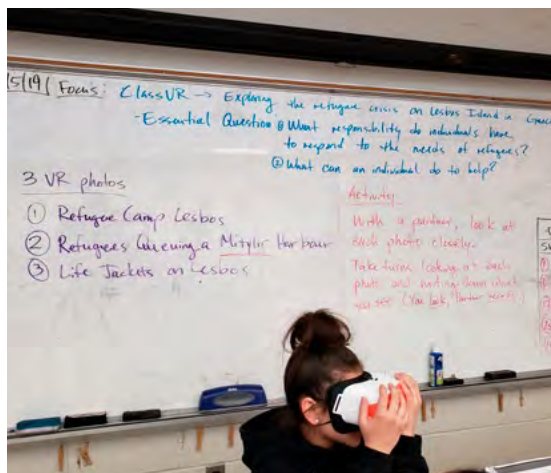 5/19/ Focus: ClassVR → Exploring the refugee crisis on Lesbos Island in Greece
- Essential Question ① What responsibility do individuals have
to respond to the needs of refugees?
② What can an individual do to help?
3 VR photos
① Refugee Camp Lesbos
② Refugees Queuing a Mitylir Harbour
③ Life Jackets on Lesbos
Activity
With a partner, look at
each photo closely.
Take turns looking at each
photo and writing down what
you see (You look, Partner writes)